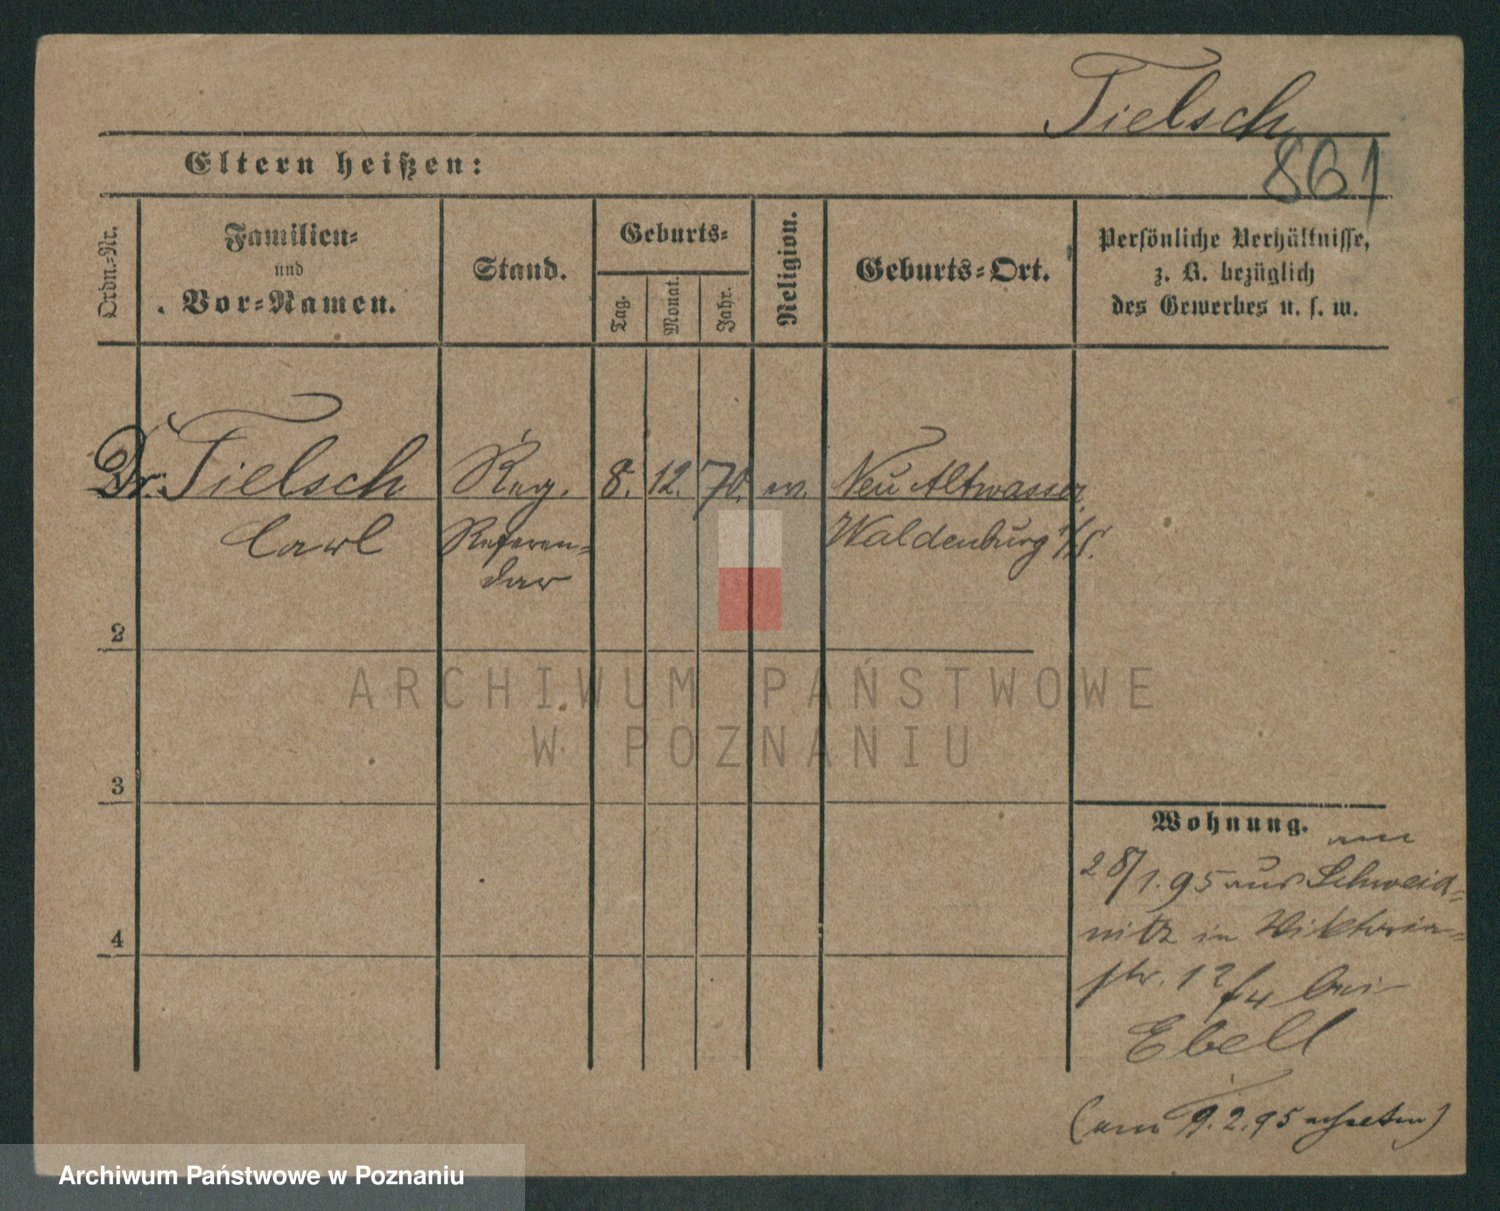 Tielsch
861
Eltern heißen:
Ordn.-Nr.
Familien-
und
Vor-Namen.
Stand.
Geburts-
Tag.
Monat.
Jahr.
Religion.
Geburts-Ort.
Persönliche Verhältnisse,
z. B. bezüglich
des Gewerbes u. s. w.
Dr. Tielsch Reg. 8. 12. 70. ev. Neu Altwasser
Carl Referen- Waldenburg i/S.
dar
2
3
4
Wohnung.
am
28/1.95 aus Schweid-
nitz in Viktoria-
str. 12/4 bei
Ebell
(am 9.2.95 erhalten)
ARCHIWUM PAŃSTWOWE
W POZNANIU
Archiwum Państwowe w Poznaniu